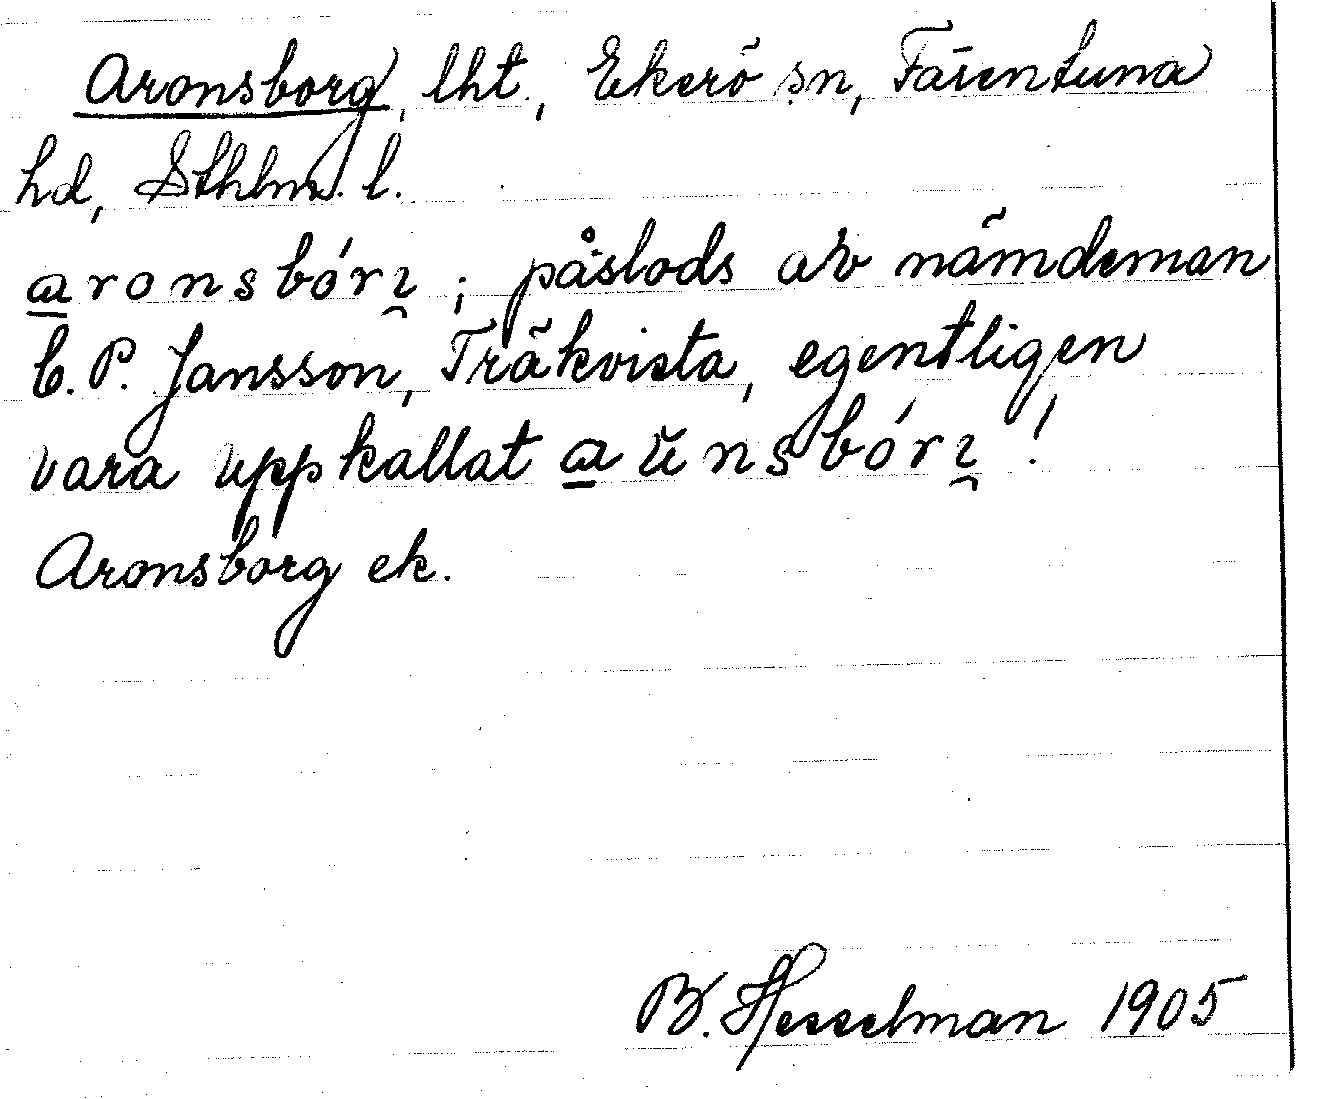 Aronsborg, lht., Ekerö sn, Färentuna
hd, Sthlm. l.
a̲ronsbórı̯ ; påslods av nämdeman
C.P. Jansson, Träkvista, egentligen
vara uppkallat a̲ŭnsbórı̯ !
Aronsborg ek.
B. Hesselman 1905